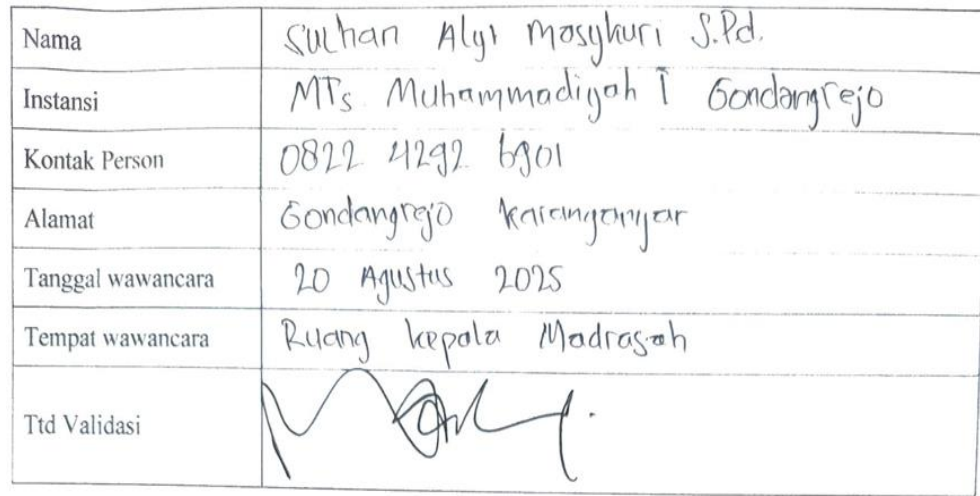 Nama Sulhan Alyi Masykuri S.Pd.
Instansi MTs Muhammadiyah 1 Gondangrejo
Kontak Person 0822 4292 6901
Alamat Gondangrejo Karanganyar
Tanggal wawancara 20 Agustus 2025
Tempat wawancara Ruang kepala Madrasah
Ttd Validasi